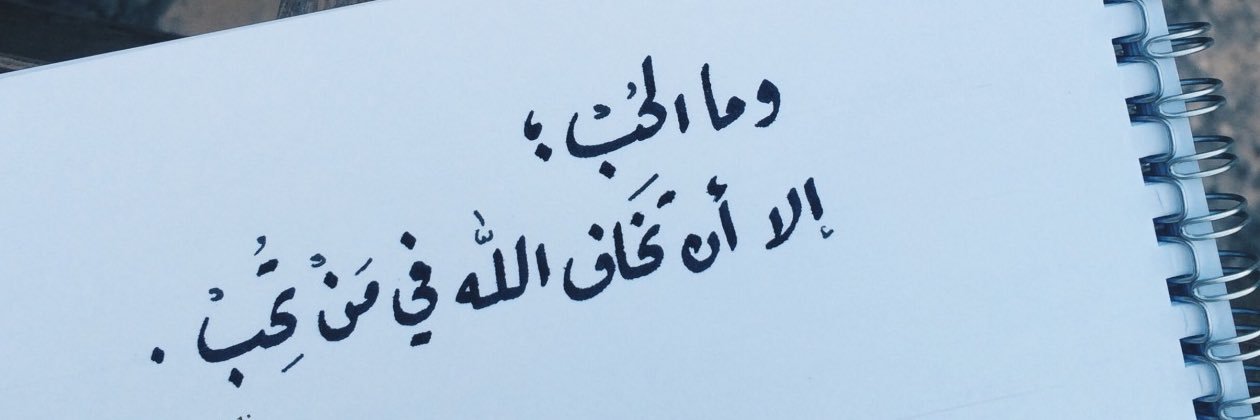 وما الحُبْ ؛
إلا أن تَخَاف اللّه في مَنْ تُحِبْ .